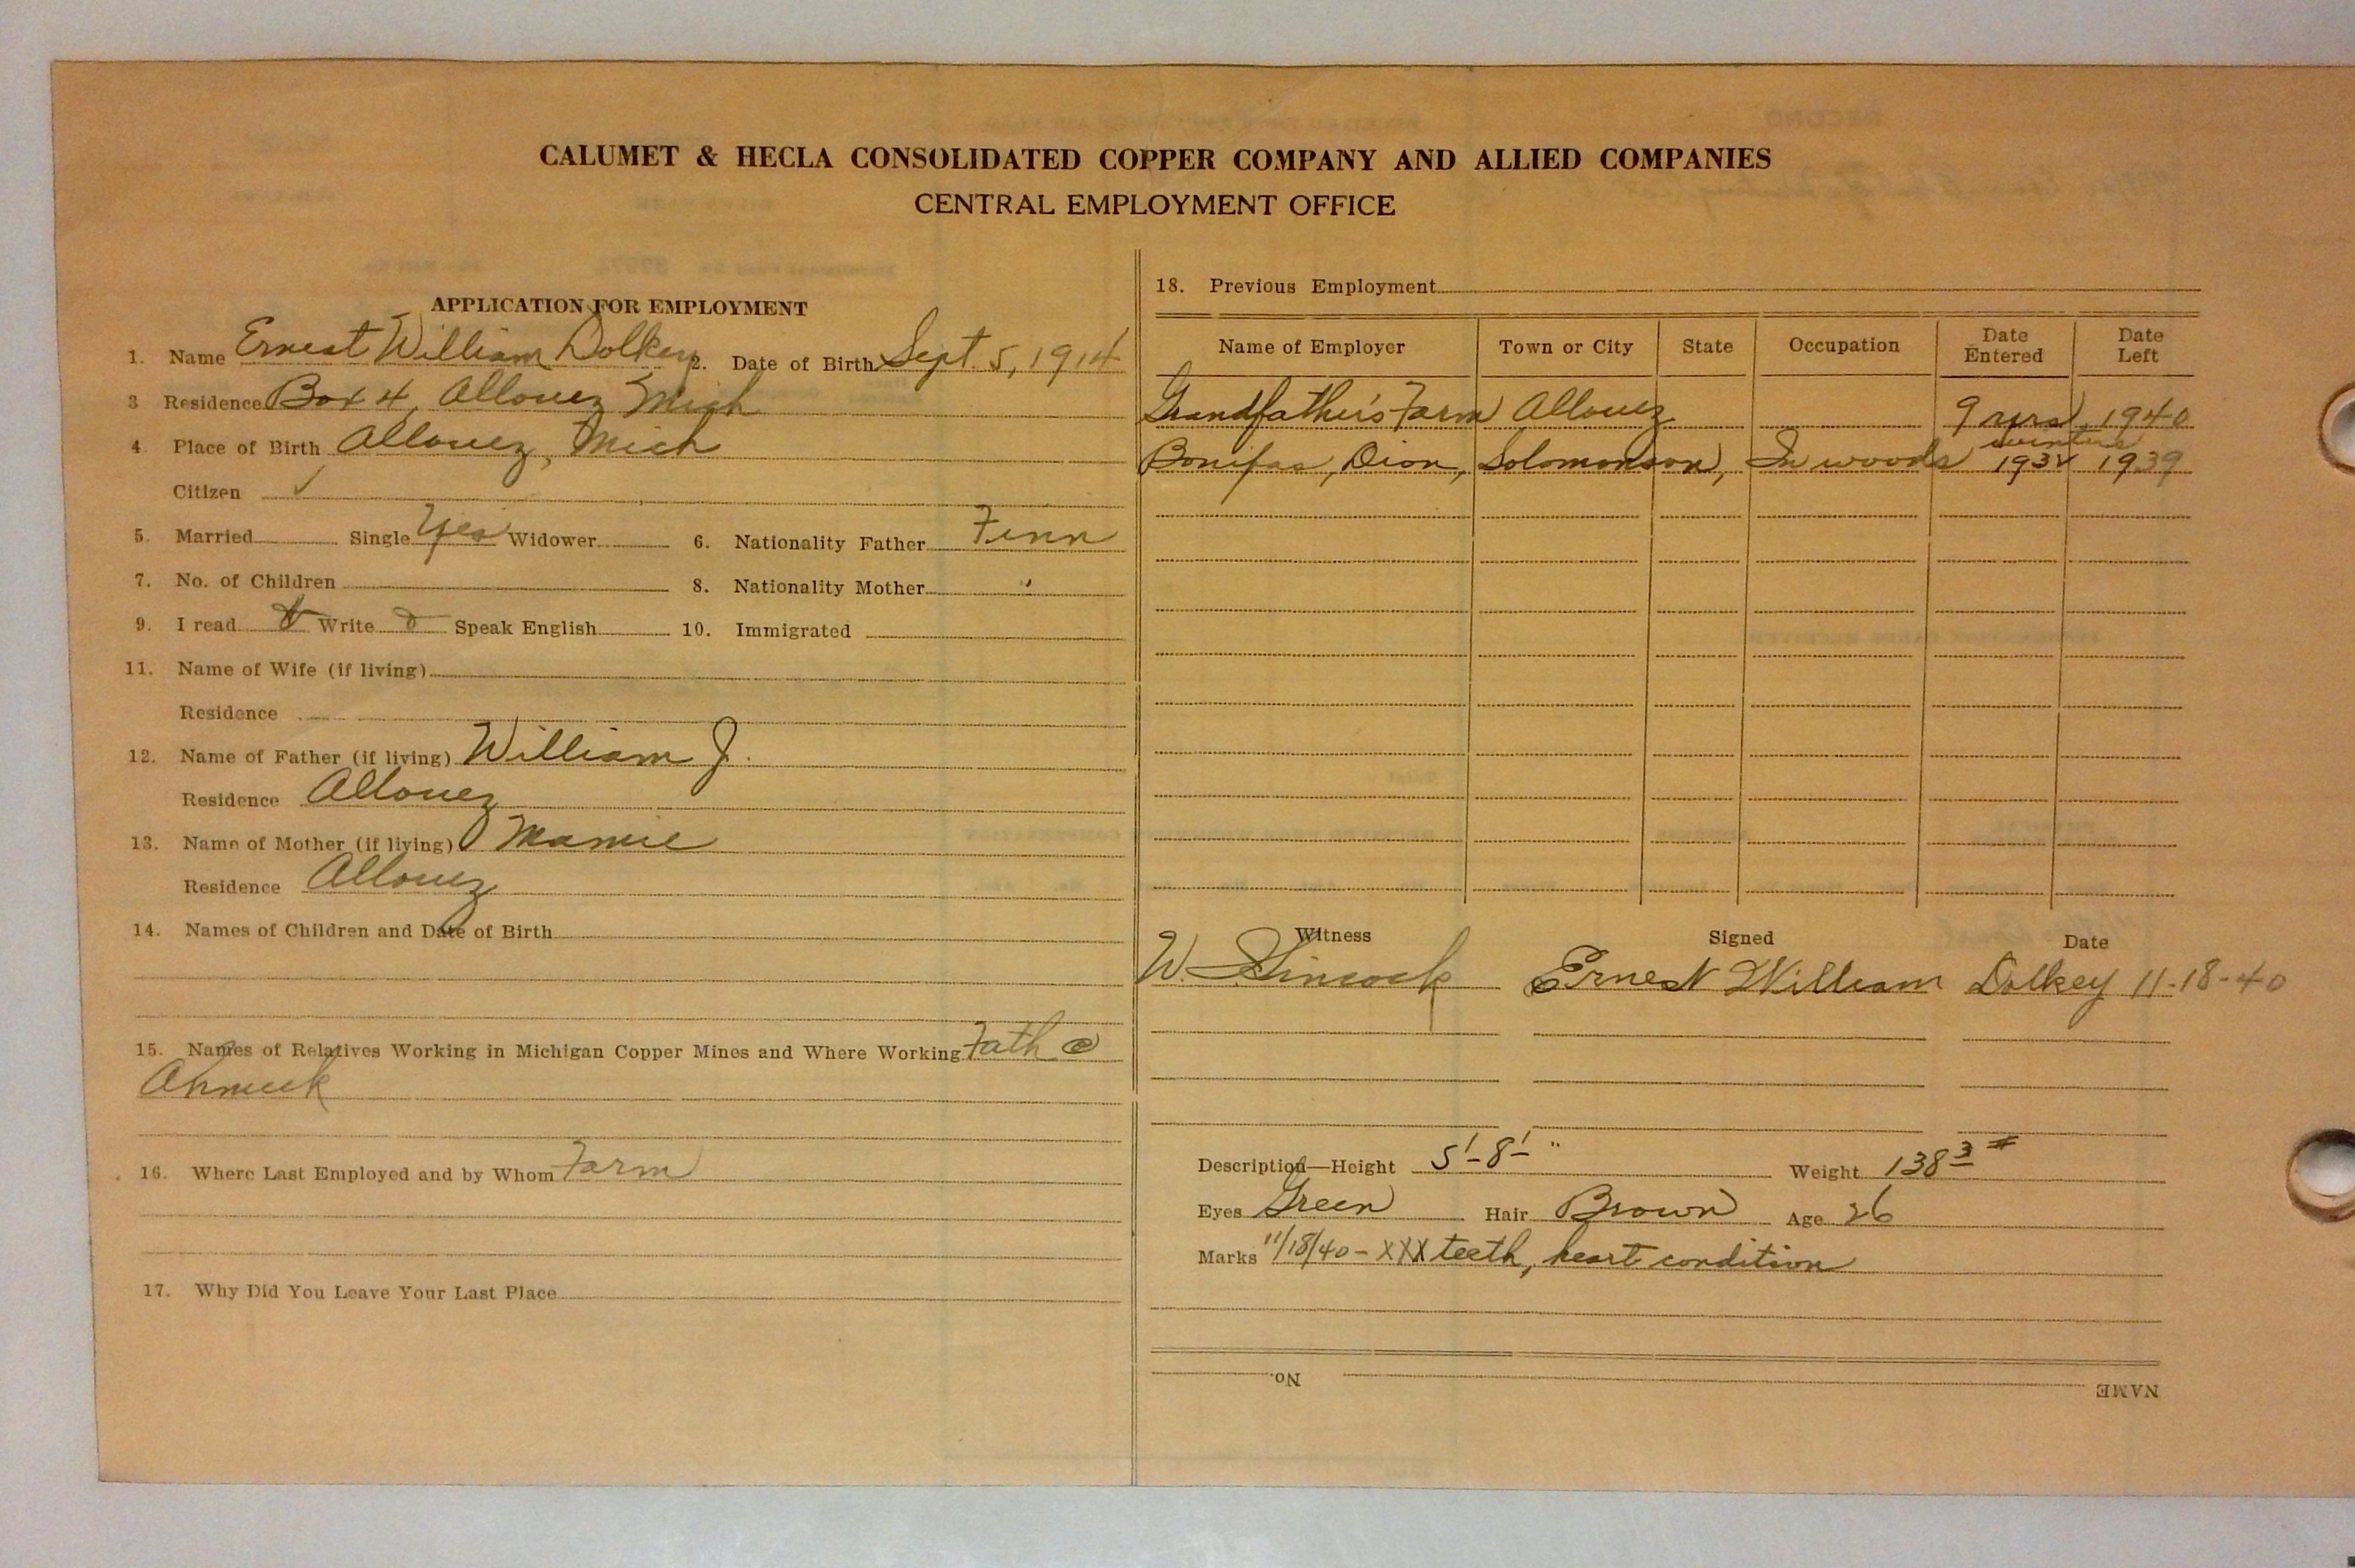 CALUMET & HECLA CONSOLIDATED COPPER COMPANY AND ALLIED COMPANIES
CENTRAL EMPLOYMENT OFFICE
APPLICATION FOR EMPLOYMENT
1. Name Ernest William Dolkey 2. Date of Birth Sept. 5, 1914
3 Residence Box 4, Allouez Mich
4. Place of Birth Allouez, Mich
Citizen ✓
5. Married Single Yes Widower 6. Nationality Father Finn
7. No. of Children 8. Nationality Mother "
9. I read Write Speak English 10. Immigrated
11. Name of Wife (if living)
Residence
12. Name of Father (if living) William J.
Residence Allouez
13. Name of Mother (if living) Mamie
Residence Allouez
14. Names of Children and Date of Birth
15. Names of Relatives Working in Michigan Copper Mines and Where Working Fath @
Ahmeek
16. Where Last Employed and by Whom Farm
17. Why Did You Leave Your Last Place
18. Previous Employment
Name of Employer Town or City State Occupation Date Entered Date Left
Grandfather's Farm Allouez 9 yrs 1940
winters
Bonifas, Dion, Solomonson, In woods 1939
Witness Signed Date
W. Ernest William Dolkey 11-18-40
Description—Height 5'-8" Weight 138 3 #
Eyes Green Hair Brown Age 26
Marks 11/18/40 - XXX teeth, heart condition
No. NAME